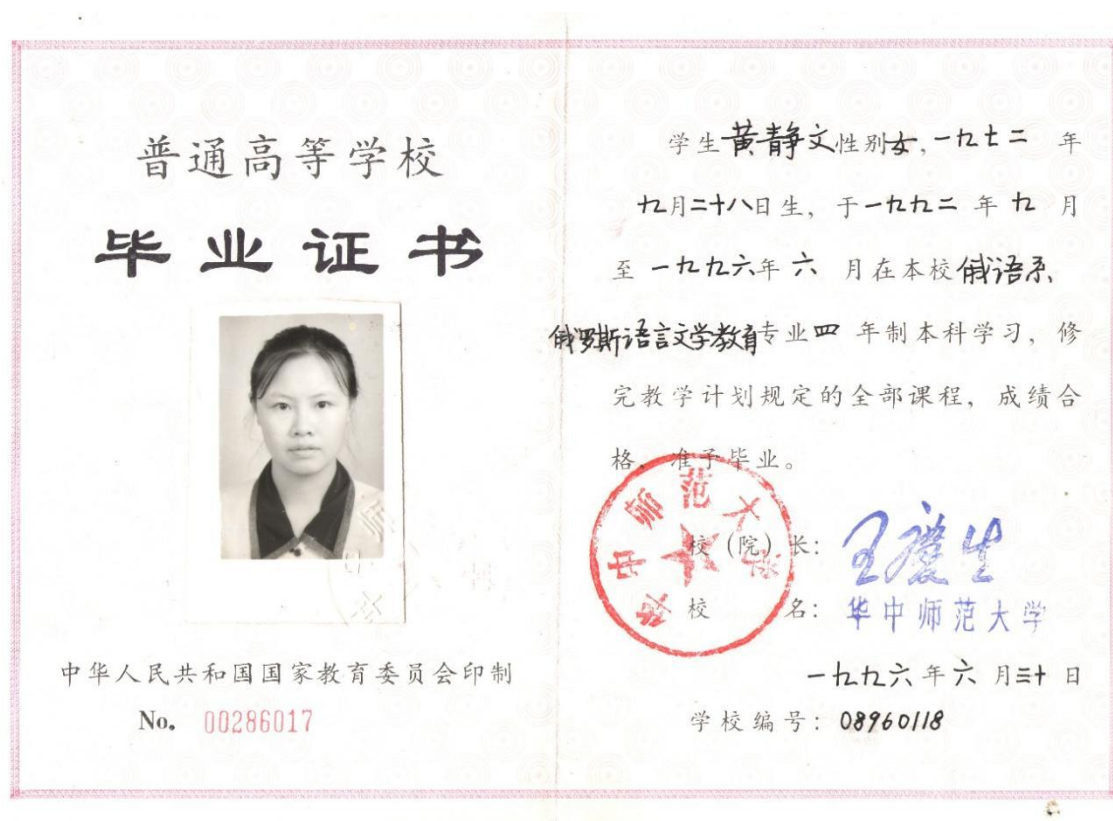 普通高等学校
毕业证书
中华人民共和国国家教育委员会印制
No. 00286017
学生黄静文性别女,一九七二 年
九月二十八日生, 于一九九二 年 九 月
至 一九九六年 六 月在本校俄语系
俄罗斯语言文学教育专业四 年制本科学习, 修
完教学计划规定的全部课程, 成绩合
格, 准予毕业。
华中师范大学
校(院)长: 王庆生
校 名: 华中师范大学
一九九六年六 月三十 日
学校编号: 08960118